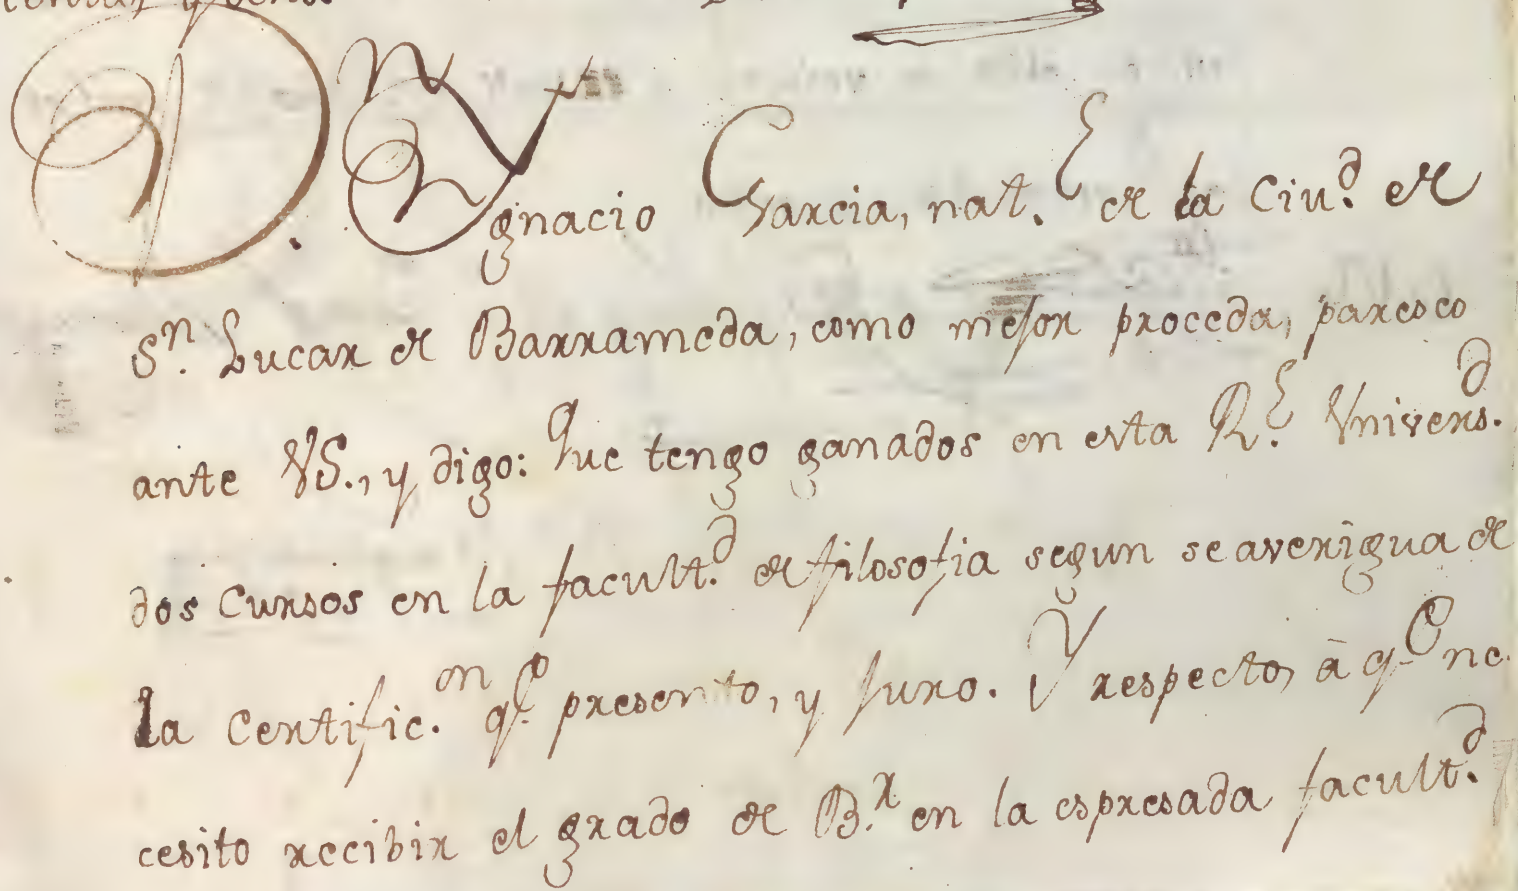 D. Ygnacio Garcia, nat.l de la Ciu.d de
Sn. Lucar de Barrameda, como mejor proceda, paresco
ante VS., y digo: Que tengo ganados en esta R.l Univers.d
dos Cursos en la facult.d de filosofia segun se averigua de
la Certific.on q.e presento, y juro. Y respecto, â q.e ne
cesito recibir el grado de B.r en la espresada facult.d